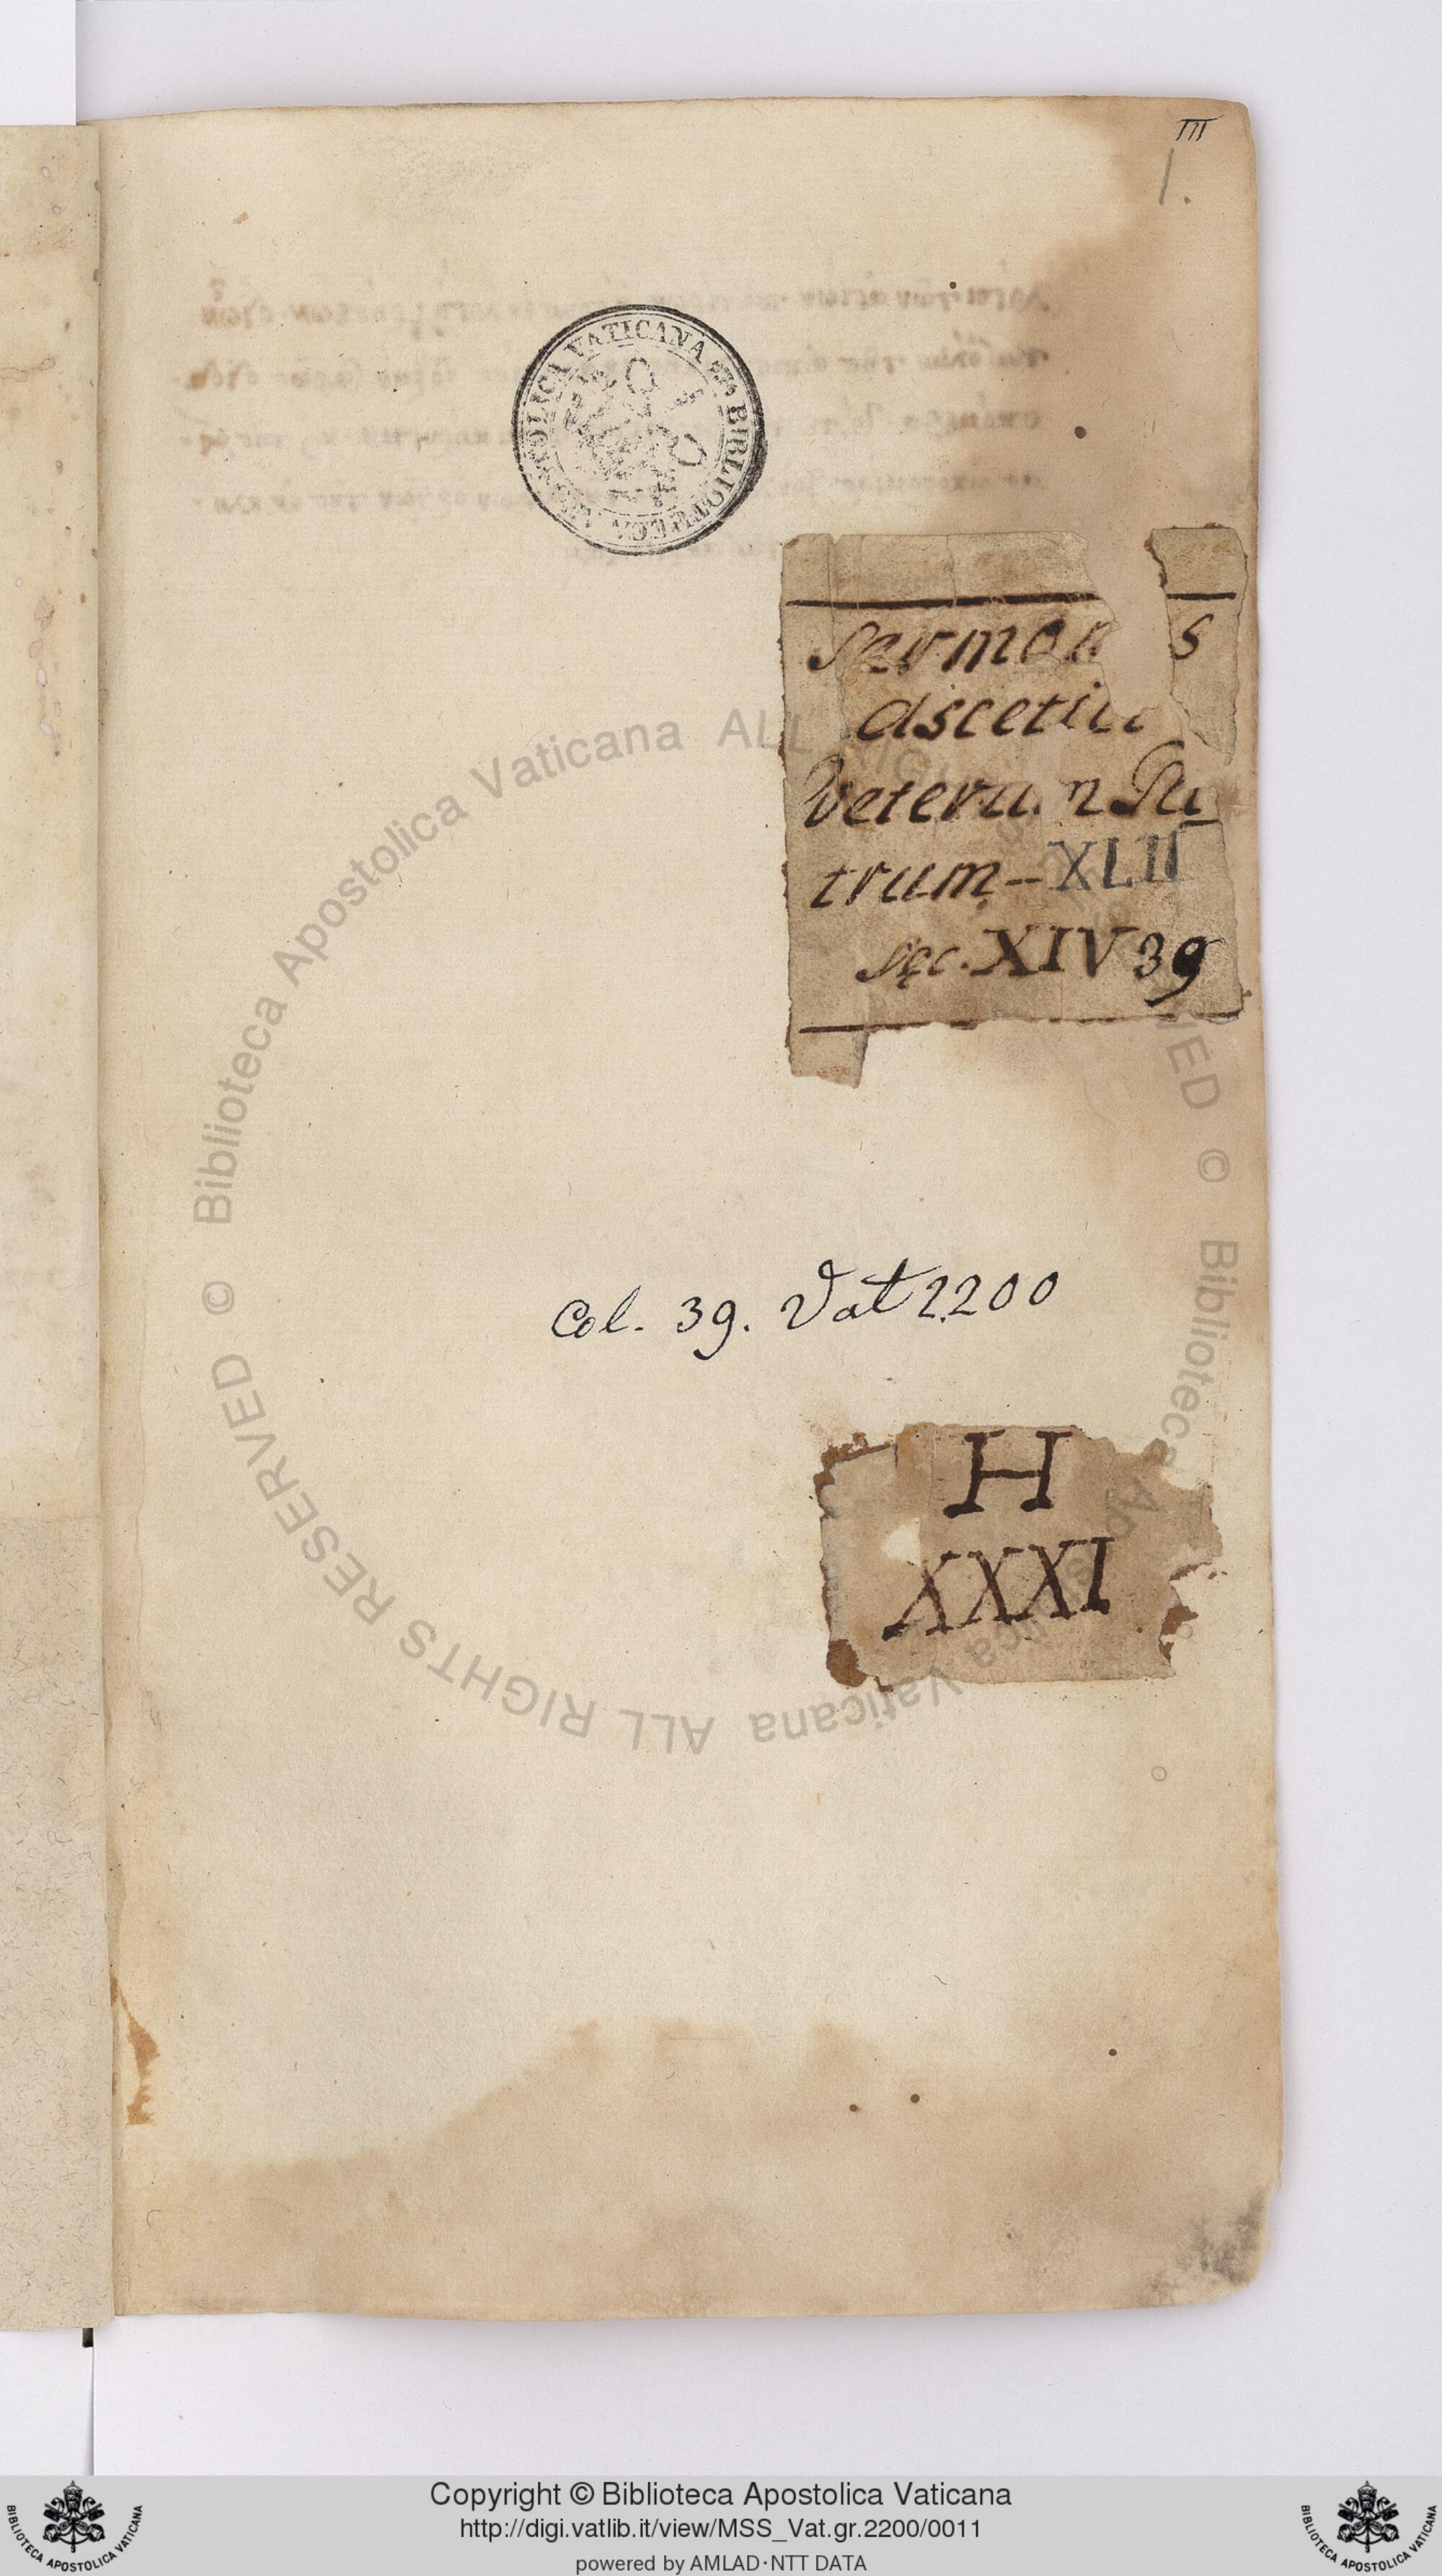 III
1.
BIBLIOTHECA APOSTOLICA VATICANA
Sermon s
ascetic
Veterum Pa
trum - XLII
Sęc. XIV 39
Col. 39. Vat 2200
H
XXXI
© Biblioteca Apostolica Vaticana ALL RIGHTS RESERVED © Biblioteca Apostolica Vaticana ALL RIGHTS RESERVED
Copyright © Biblioteca Apostolica Vaticana
http://digi.vatlib.it/view/MSS_Vat.gr.2200/0011
powered by AMLAD·NTT DATA
BIBLIOTECA APOSTOLICA VATICANA
BIBLIOTECA APOSTOLICA VATICANA